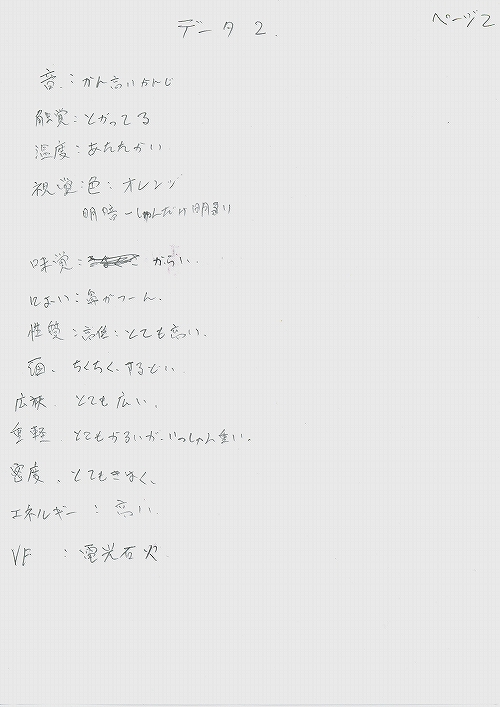 ページ2
データ 2.
音.:かん高いかんじ
触覚:とがってる
温度:あたたかい
視覚:色:オレンジ
明暗 一しゅんだけ明るい
味覚: からい.
におい:鼻がつーん.
性質:高低:とても高い.
面. ちくちく.するどい.
広狭. とても広い.
重軽. とてもかるいが.いっしゅん重い.
密度.とても
エネルギー:高い.
VF :電光石火